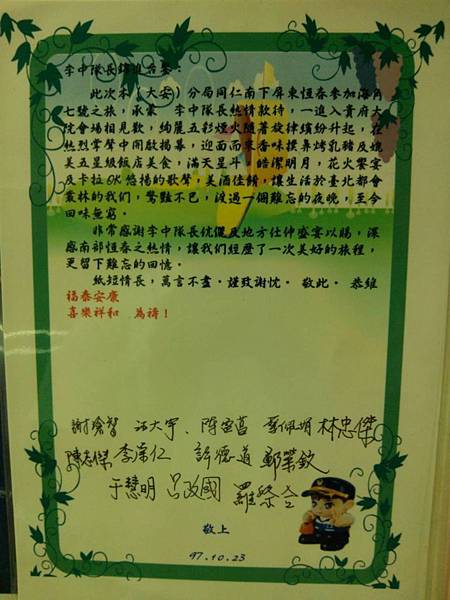 李中隊長錦進台鑒：
此次本(大安)分局同仁南下屏東恆春參加海角
七號之旅，承蒙　李中隊長熱情款待，一進入貴府大
院會場相見歡，絢麗五彩煙火隨著旋律繽紛升起，在
熱烈掌聲中開啟揭幕，迎面而來香味撲鼻烤乳豬及媲
美五星級飯店美食，滿天星斗、皓潔明月，花火饗宴
及卡拉OK悠揚的歌聲，美酒佳餚，讓生活於臺北都會
叢林的我們，驚豔不已，渡過一個難忘的夜晚，至今
回味無窮。
非常感謝李中隊長伉儷及地方仕紳盛宴以賜，深
感南部恆春之熱情，讓我們經歷了一次美好的旅程，
更留下難忘的回憶。
紙短情長，萬言不盡。謹致謝忱。 敬此。 恭維
福泰安康
喜樂祥和　為禱！
汪大宇、林忠傑
陳志傑 李榮仁 許德道 鄭業欽
于慧明 呂政國
敬上
97.10.23